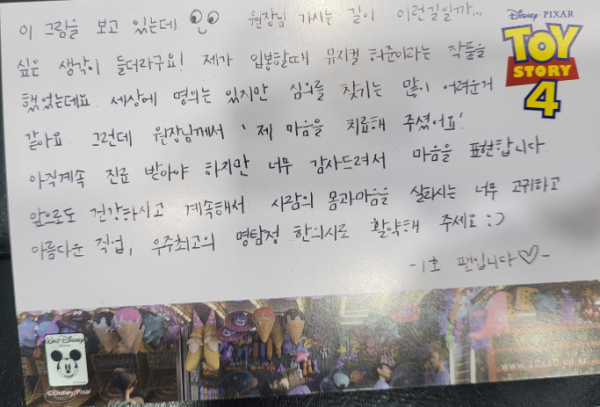 이 그림을 보고 있는데 원장님 가시는 길이 이런길일까...
싶은 생각이 들더라구요! 제가 입봉할때 뮤지컬 허준이라는 작품을
했었는데요 세상에 명의는 있지만 심의를 찾기는 많이 어려운거
같아요 그런데 원장님께서 '제 마음을 치료해 주셨어요!'
아직계속 진료 받아야 하지만 너무 감사드려서 마음을 표현합니다
앞으로도 건강하시고 계속해서 사람의 몸과마음을 살리시는 너무 고귀하고
아름다운 직업, 우주최고의 명탐정 한의사로 활약해 주세요 :)
-1호 팬입니다♡-
DISNEY · PIXAR
TOY
STORY
4
WALT DISNEY
©Disney/Pixar